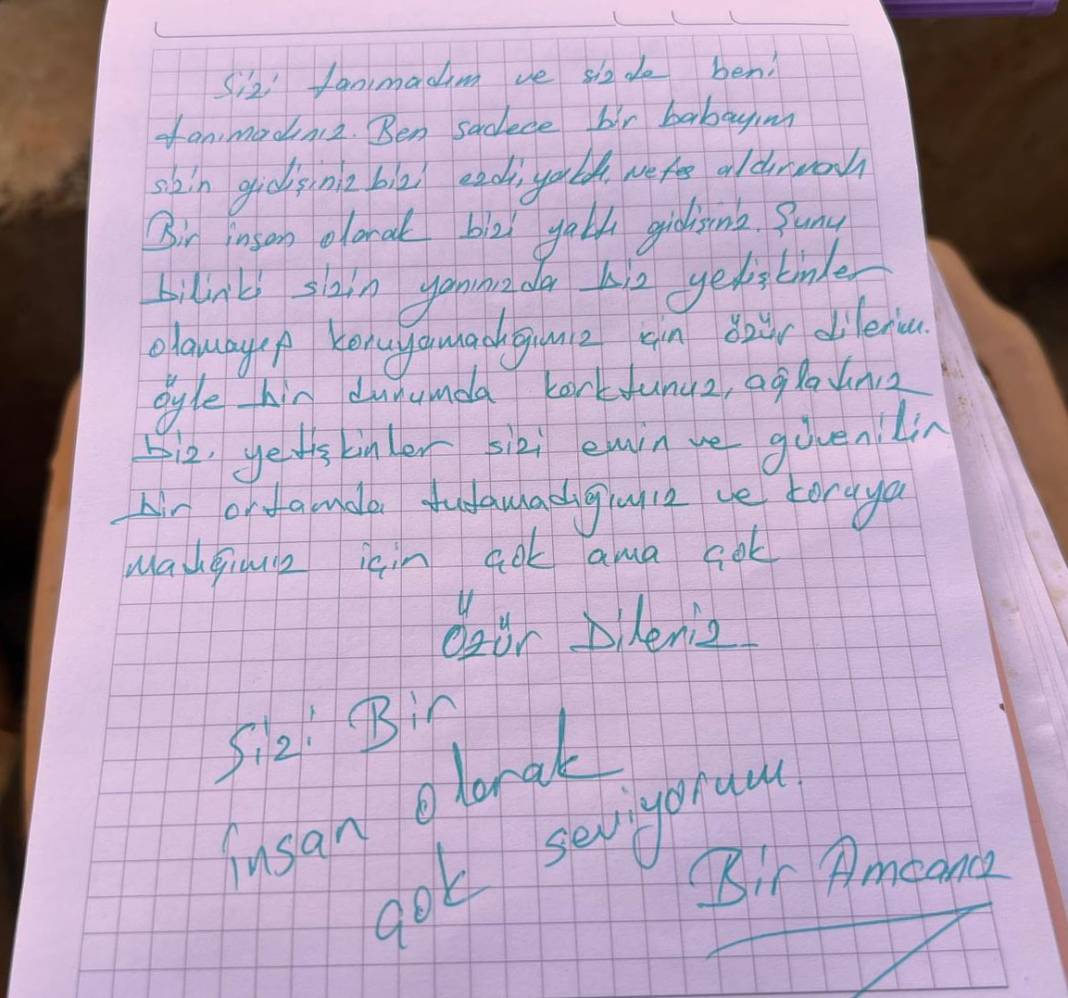 Sizi tanımadım ve sizde beni
tanımadınız. Ben sadece bir babayım
sizin gidişiniz bizi ezdi, yaktı. nefes aldırmadı
Bir insan olarak bizi yaktı gidişiniz. Şunu
bilinki sizin yanınızda biz yetişkinler
olamayıp koruyamadığımız için özür dilerim.
öyle bir durumda korktunuz, ağladınız
biz, yetişkinler sizi emin ve güvenilir
bir ortamda tutamadığımız ve koruya
madığımız için çok ama çok
Özür Dileriz
Sizi Bir
insan olarak
çok seviyorum.
Bir Amcanız